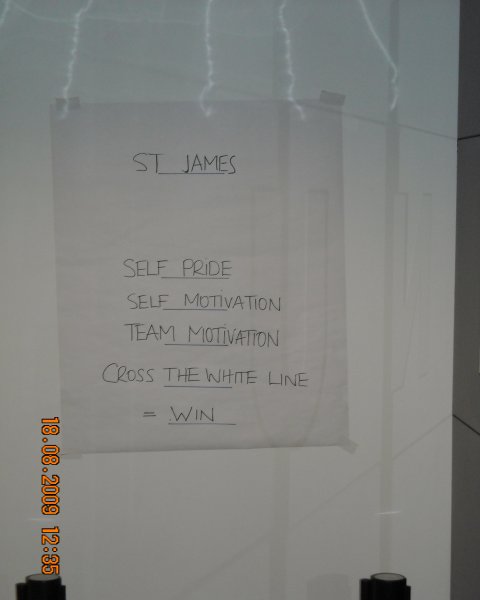 ST JAMES
SELF PRIDE
SELF MOTIVATION
TEAM MOTIVATION
CROSS THE WHITE LINE
= WIN
18.08.2009 12:35